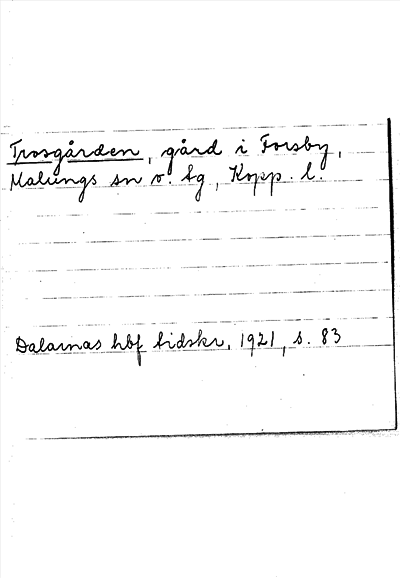 Trosgården, gård i Forsby,
Malungs sn o. tg, Kopp. l.
Dalarnas hbf tidskr, 1921, s. 83